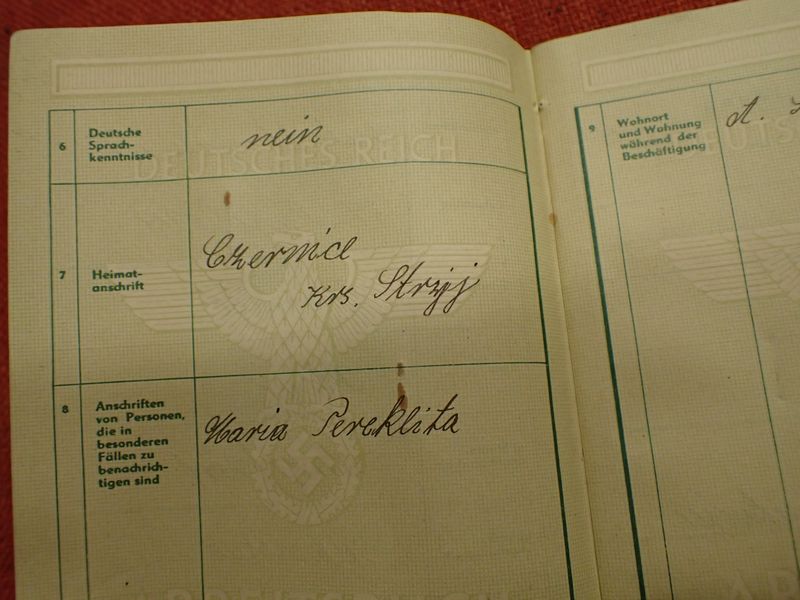 6 Deutsche
Sprach-
kenntnisse
nein
DEUTSCHES REICH
7 Heimat-
anschrift
Czernice
Krs. Stryj
8 Anschriften
von Personen,
die in
besonderen
Fällen zu
benachrich-
tigen sind
Maria Pereklita
9 Wohnort
und Wohnung
während der
Beschäftigung